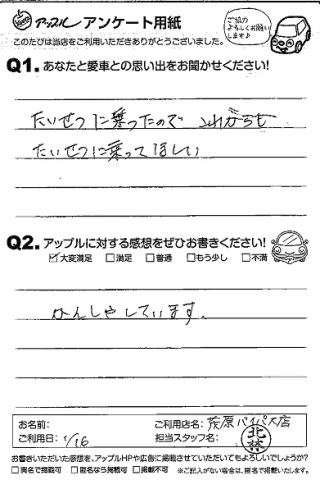 アップル アンケート用紙
ご協力
よろしくお願い
します♪
このたびは当店をご利用いただきありがとうございました。
Q1. あなたと愛車との思い出をお聞かせください!
たいせつに乗ったので これからも
たいせつに乗ってほしい
Q2. アップルに対する感想をぜひお書きください!
☑大変満足 □満足 □普通 □もう少し □不満
かんしゃしています。
お名前: ご利用店名: 茂原バイパス店
ご利用日: 1/16 担当スタッフ名:
お書きいただいた感想を、アップルHPや広告に掲載させていただいてもよろしいでしょうか?
□実名で掲載可 □匿名なら掲載可 □掲載不可 ※ご記入がない場合は、匿名で掲載いたします。